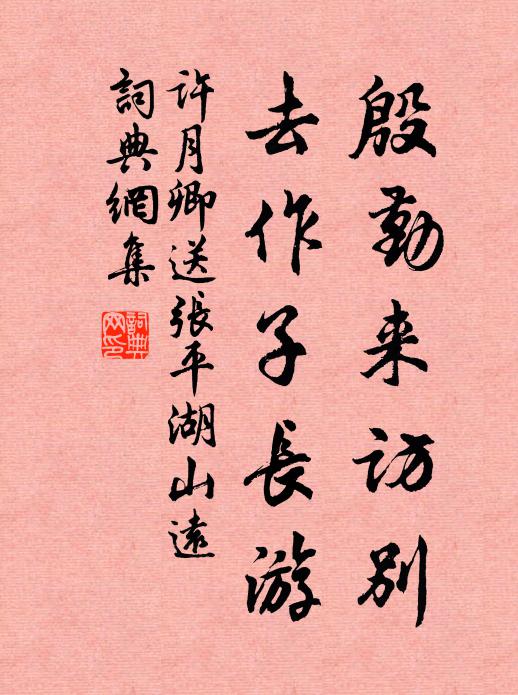 殷勤来访别
去作子長游
许月卿送張平湖山遠
詞典網集
詞典
网印